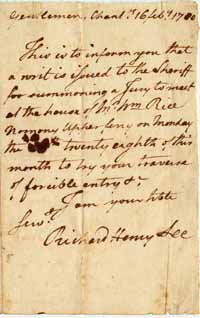 Gentlemen, Chant.y 16 feb.y 1780
This is to inform you that
a writ is issued to the Sheriff
for summoning a Jury to meet
at the house of Mr. Wm. Rice
Nomony Upher on Monday
the twenty eighth of this
month to try your traverse
of forcible entry &c
I am your hble
Serv.t
Richard Henry Lee